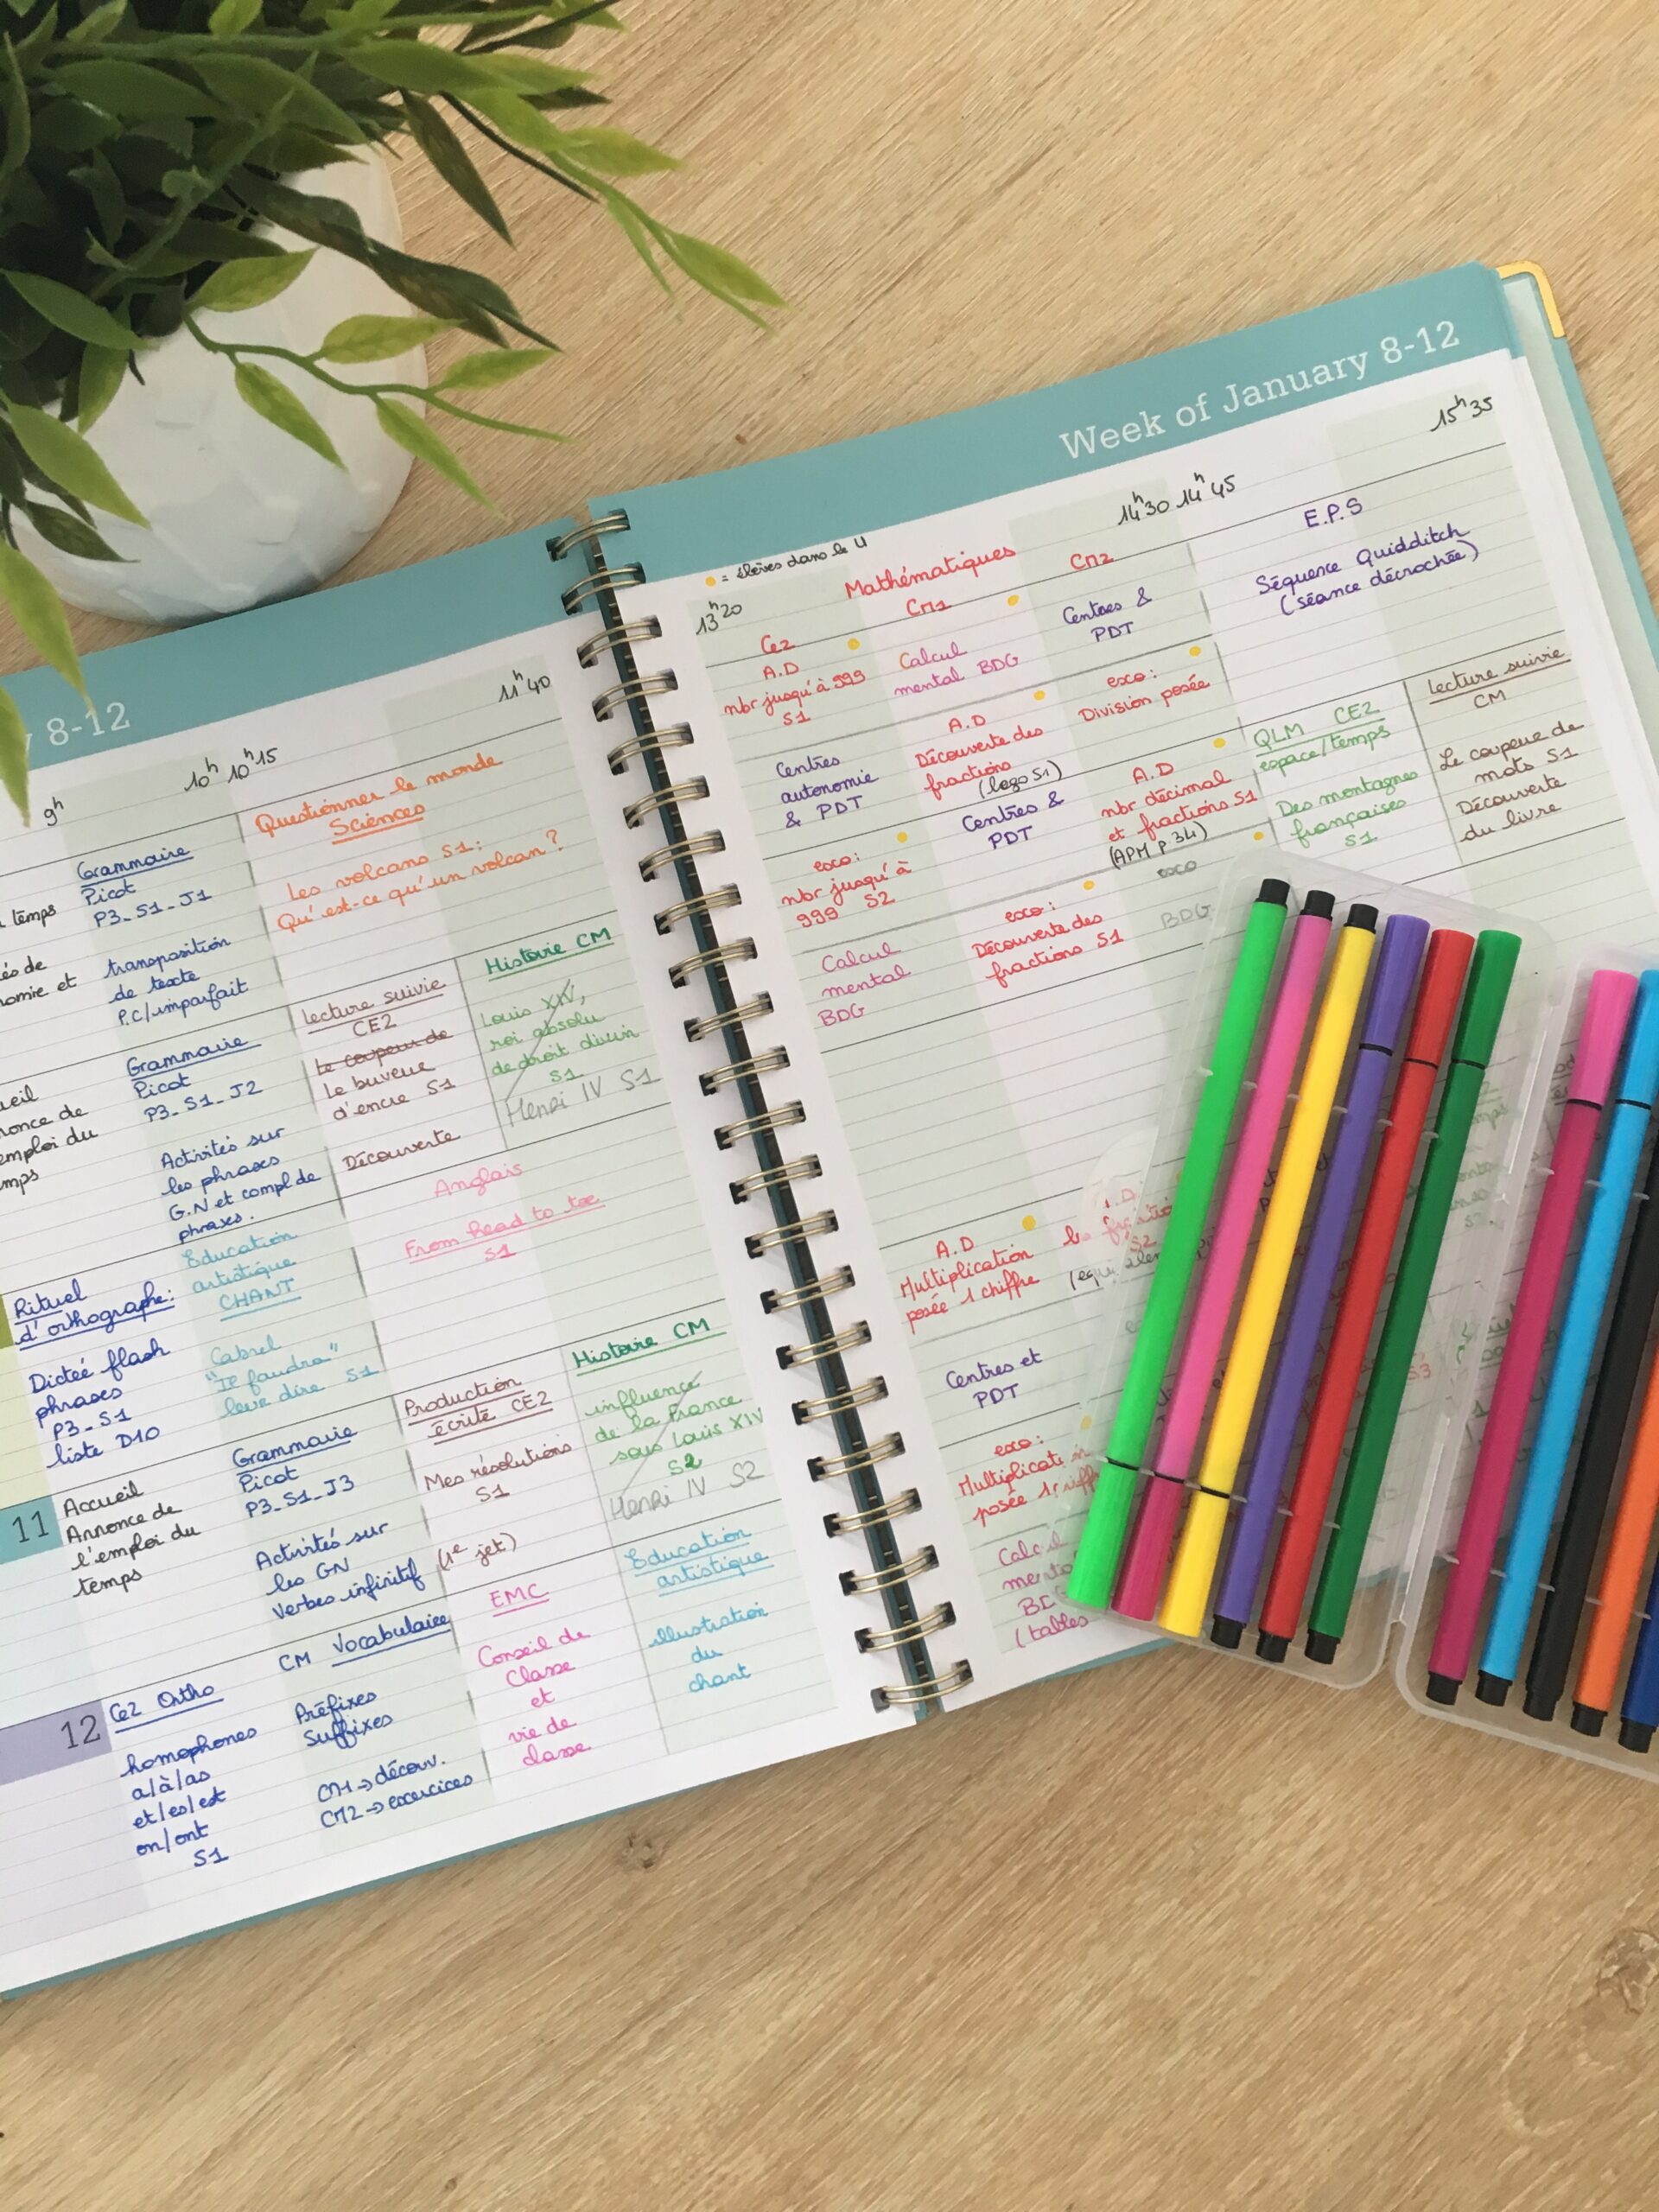 8-12
9h
10h 10h15
11h40
temps
Grammaire
Picot
P3_S1_J1
transposition
de texte
P.C/imparfait
Questionner le monde
Sciences
Les volcans S1:
Qu'est-ce qu'un volcan?
Grammaire
Picot
P3_S1_J2
Activités sur
les phrases
G.N et compl de
phrases.
emploi du
Lecture suivie
CE2
Le coupeur de
Le buveur
d'encre S1
Découverte
Histoire CM
Louis XIV,
roi absolu
de droit divin
S1
Henri IV S1
Rituel
d'orthographe:
Dictée flash
phrases
P3_S1
liste D10
Education
artistique
CHANT
Cabrel
"Il faudra"
leur dire S1
Anglais
From head to toe
S1
11
Accueil
Annonce de
l'emploi du
temps
Grammaire
Picot
P3_S1_J3
Activités sur
les GN
Verbes infinitif
Production
écrite CE2
Mes résolutions
S1
(1e jet)
Histoire CM
influence
de la France
sous Louis XIV
S2
Henri IV S2
12
Ce2 Ortho
homophones
a/à/as
et/es/est
on/ont
S1
CM Vocabulaire
Préfixes
Suffixes
CM1→découv.
CM2→exercices
EMC
Conseil de
Classe
et
vie de
classe
Education
artistique
illustration
du
chant
Week of January 8-12
= élèves dans le U
13h20
14h30 14h45
15h35
Mathématiques
Ce2
CM1
CM2
A.D
nbr jusqu'à 999
S1
Calcul
mental BDG
Centres &
PDT
E.P.S
Séquence Quidditch
(séance décrochée)
Centres
autonomie
& PDT
A.D
Découverte des
fractions
(lego S1)
exo:
Division posée
exo:
nbr jusqu'à
999 S2
Centres &
PDT
A.D
nbr décimal
et fractions S1
(APM p 34)
QLM CE2
espace/temps
Des montagnes
françaises
S1
Lecture suivie
CM
Le coupeur de
mots S1
Découverte
du livre
Calcul
mental
BDG
exo:
Découverte des
fractions S1
exo
BDG
A.D
Multiplication
posée 1 chiffre
A.D.
S2
Centres et
PDT
exo:
posée
S3
(tables